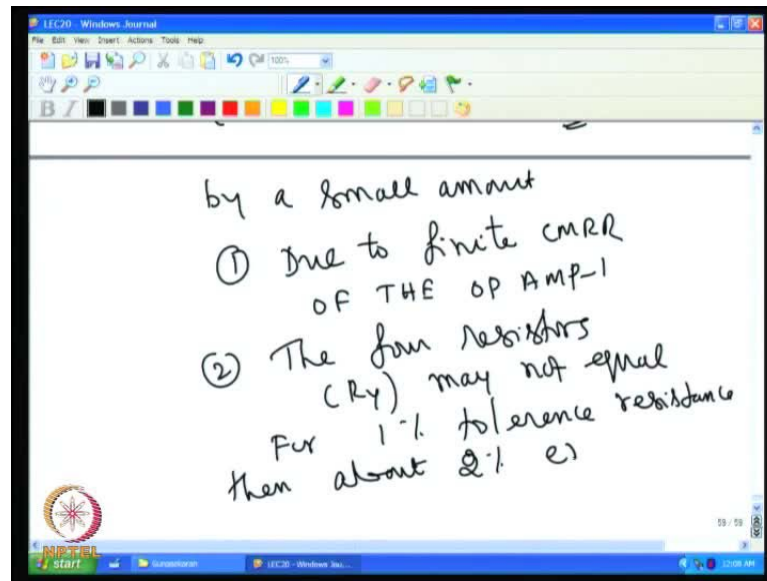 LEC20 - Windows Journal
File Edit View Insert Actions Tools Help
100%
B I
by a small amount
① Due to finite CMRR
OF THE OP AMP-1
② The four resistors
(Ry) may not equal
For 1% tolerence resistance
then about 2% e
59 / 59
NPTEL
start
Gunasekaran
LEC20 - Windows Jou...
12:08 AM